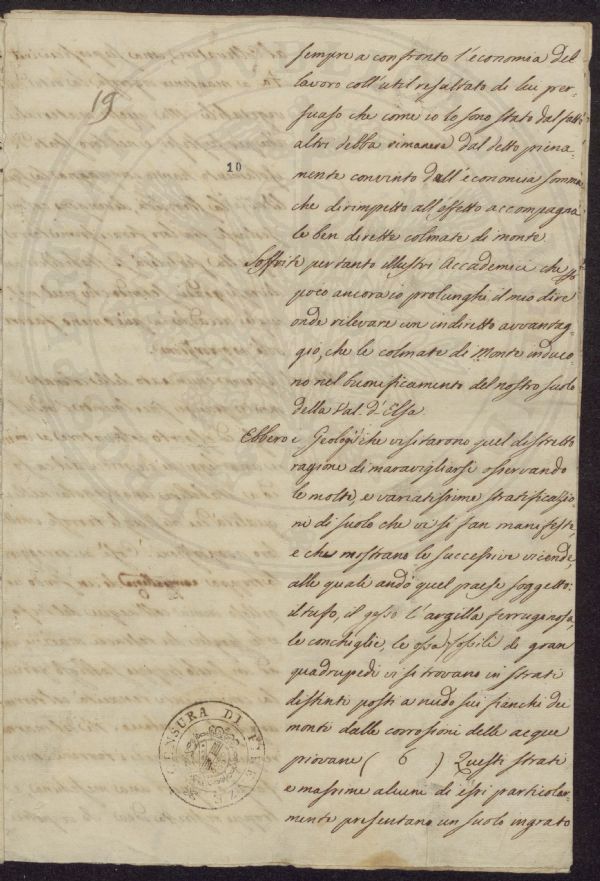 19
10
sempre a confronto l'economia del
lavoro coll'util resultato di lui per-
suaso che come io lo sono stato dal fatto
altri debba rimanere dal detto piena-
mente convinto dall'economia somma
che dirimpetto all'effetto accompagna
le ben dirette colmate di monte
Soffrite pertanto illustri Accademici che
poco ancora io prolunghi il mio dire
onde rilevare un indiretto avvantag-
gio, che le colmate di Monte induco-
no nel buonificamento del nostro suolo
della Val. d'Elsa.
Ebbero i Geologi che visitarono quel distretto
ragione di maravigliarsi osservando
le molte, e variatissime stratificazio
ni di suolo che vi si fan manifeste,
e che mostrano le successive vicende,
alle quale andò quel paese soggetto:
il tufo, il gesso l'argilla ferruginosa,
le conchiglie, le ossa fossili di gran
quadrupedi vi si trovano in strati
distinti posti a nudo sui fianchi dei
monti dalle corrosioni delle acque
piovane ( 6 ) Questi strati
e massime alcuni di essi particolar-
mente presentano un suolo ingrato
CENSURA DI FIRENZE